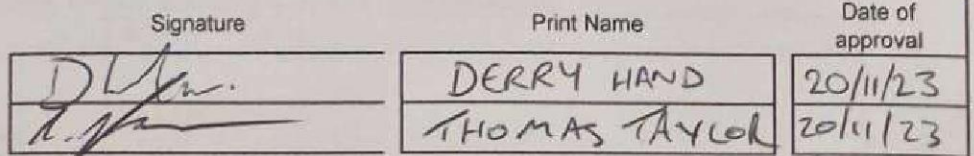 Signature Print Name Date of approval
DERRY HAND 20/11/23
THOMAS TAYLOR 20/11/23